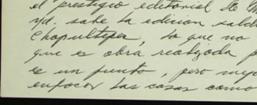 el prestigio editorial de
yd. sabe la edicion
Chapultepec, lo que no
que es obra realizada
es un punto, pero
enfocar las cosas como